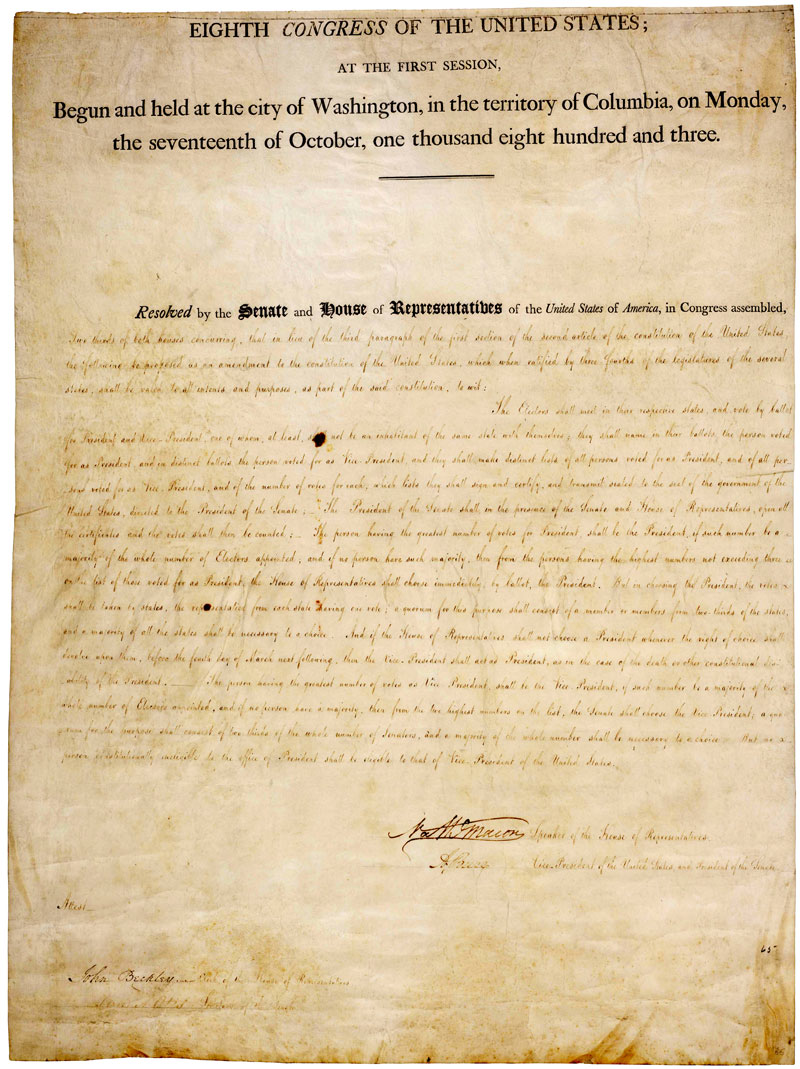 EIGHTH CONGRESS OF THE UNITED STATES;
AT THE FIRST SESSION,
Begun and held at the city of Washington, in the territory of Columbia, on Monday,
the seventeenth of October, one thousand eight hundred and three.
Resolved by the Senate and House of Representatives of the United States of America, in Congress assembled,
Two thirds of both houses concurring, that in lieu of the third paragraph of the first section of the second article of the constitution of the United States,
the following be proposed as an amendment to the constitution of the United States, which when ratified by three fourths of the legislatures of the several
states, shall be valid to all intents and purposes, as part of the said constitution, to wit:
The Electors shall meet in their respective states, and vote by ballot
for President and Vice-President, one of whom, at least, not be an inhabitant of the same state with themselves; they shall name in their ballots, the person voted
for as President, and in distinct ballots the person voted for as Vice-President, and they shall make distinct lists of all persons voted for as President, and of all per-
sons voted for as Vice-President, and of the number of votes for each, which lists they shall sign and certify, and transmit sealed to the seat of the government of the
United States, directed to the President of the Senate; The President of the Senate shall in the presence of the Senate and House of Representatives, open all
the certificates and the votes shall then be counted; The person having the greatest number of votes for President, shall be the President, if such number be a
majority of the whole number of Electors appointed; and if no person have such majority, then from the persons having the highest numbers not exceeding three
on the list of those voted for as President, the House of Representatives shall choose immediately, by ballot, the President. But in choosing the President, the votes
shall be taken by states, the representation from each state having one vote; a quorum for this purpose shall consist of a member or members from two-thirds of the states,
and a majority of all the states shall be necessary to a choice. And if the House of Representatives shall not choose a President whenever the right of choice shall
devolve upon them, before the fourth day of March next following, then the Vice-President shall act as President, as in the case of the death or other constitutional dis-
ability of the President. The person having the greatest number of votes as Vice President, shall be the Vice President, if such number be a majority of the
whole number of Electors appointed, and if no person have a majority, then from the two highest numbers on the list, the Senate shall choose the Vice President; a quo-
rum for the purpose shall consist of two thirds of the whole number of Senators, and a majority of the whole number shall be necessary to a choice. But no
person constitutionally ineligible to the office of President shall be eligible to that of Vice President of the United States.
Nathl Macon Speaker of the House of Representatives.
A. Burr Vice-President of the United States, and President of the Senate.
Attest
65
John Beckley Clerk of the House of Representatives